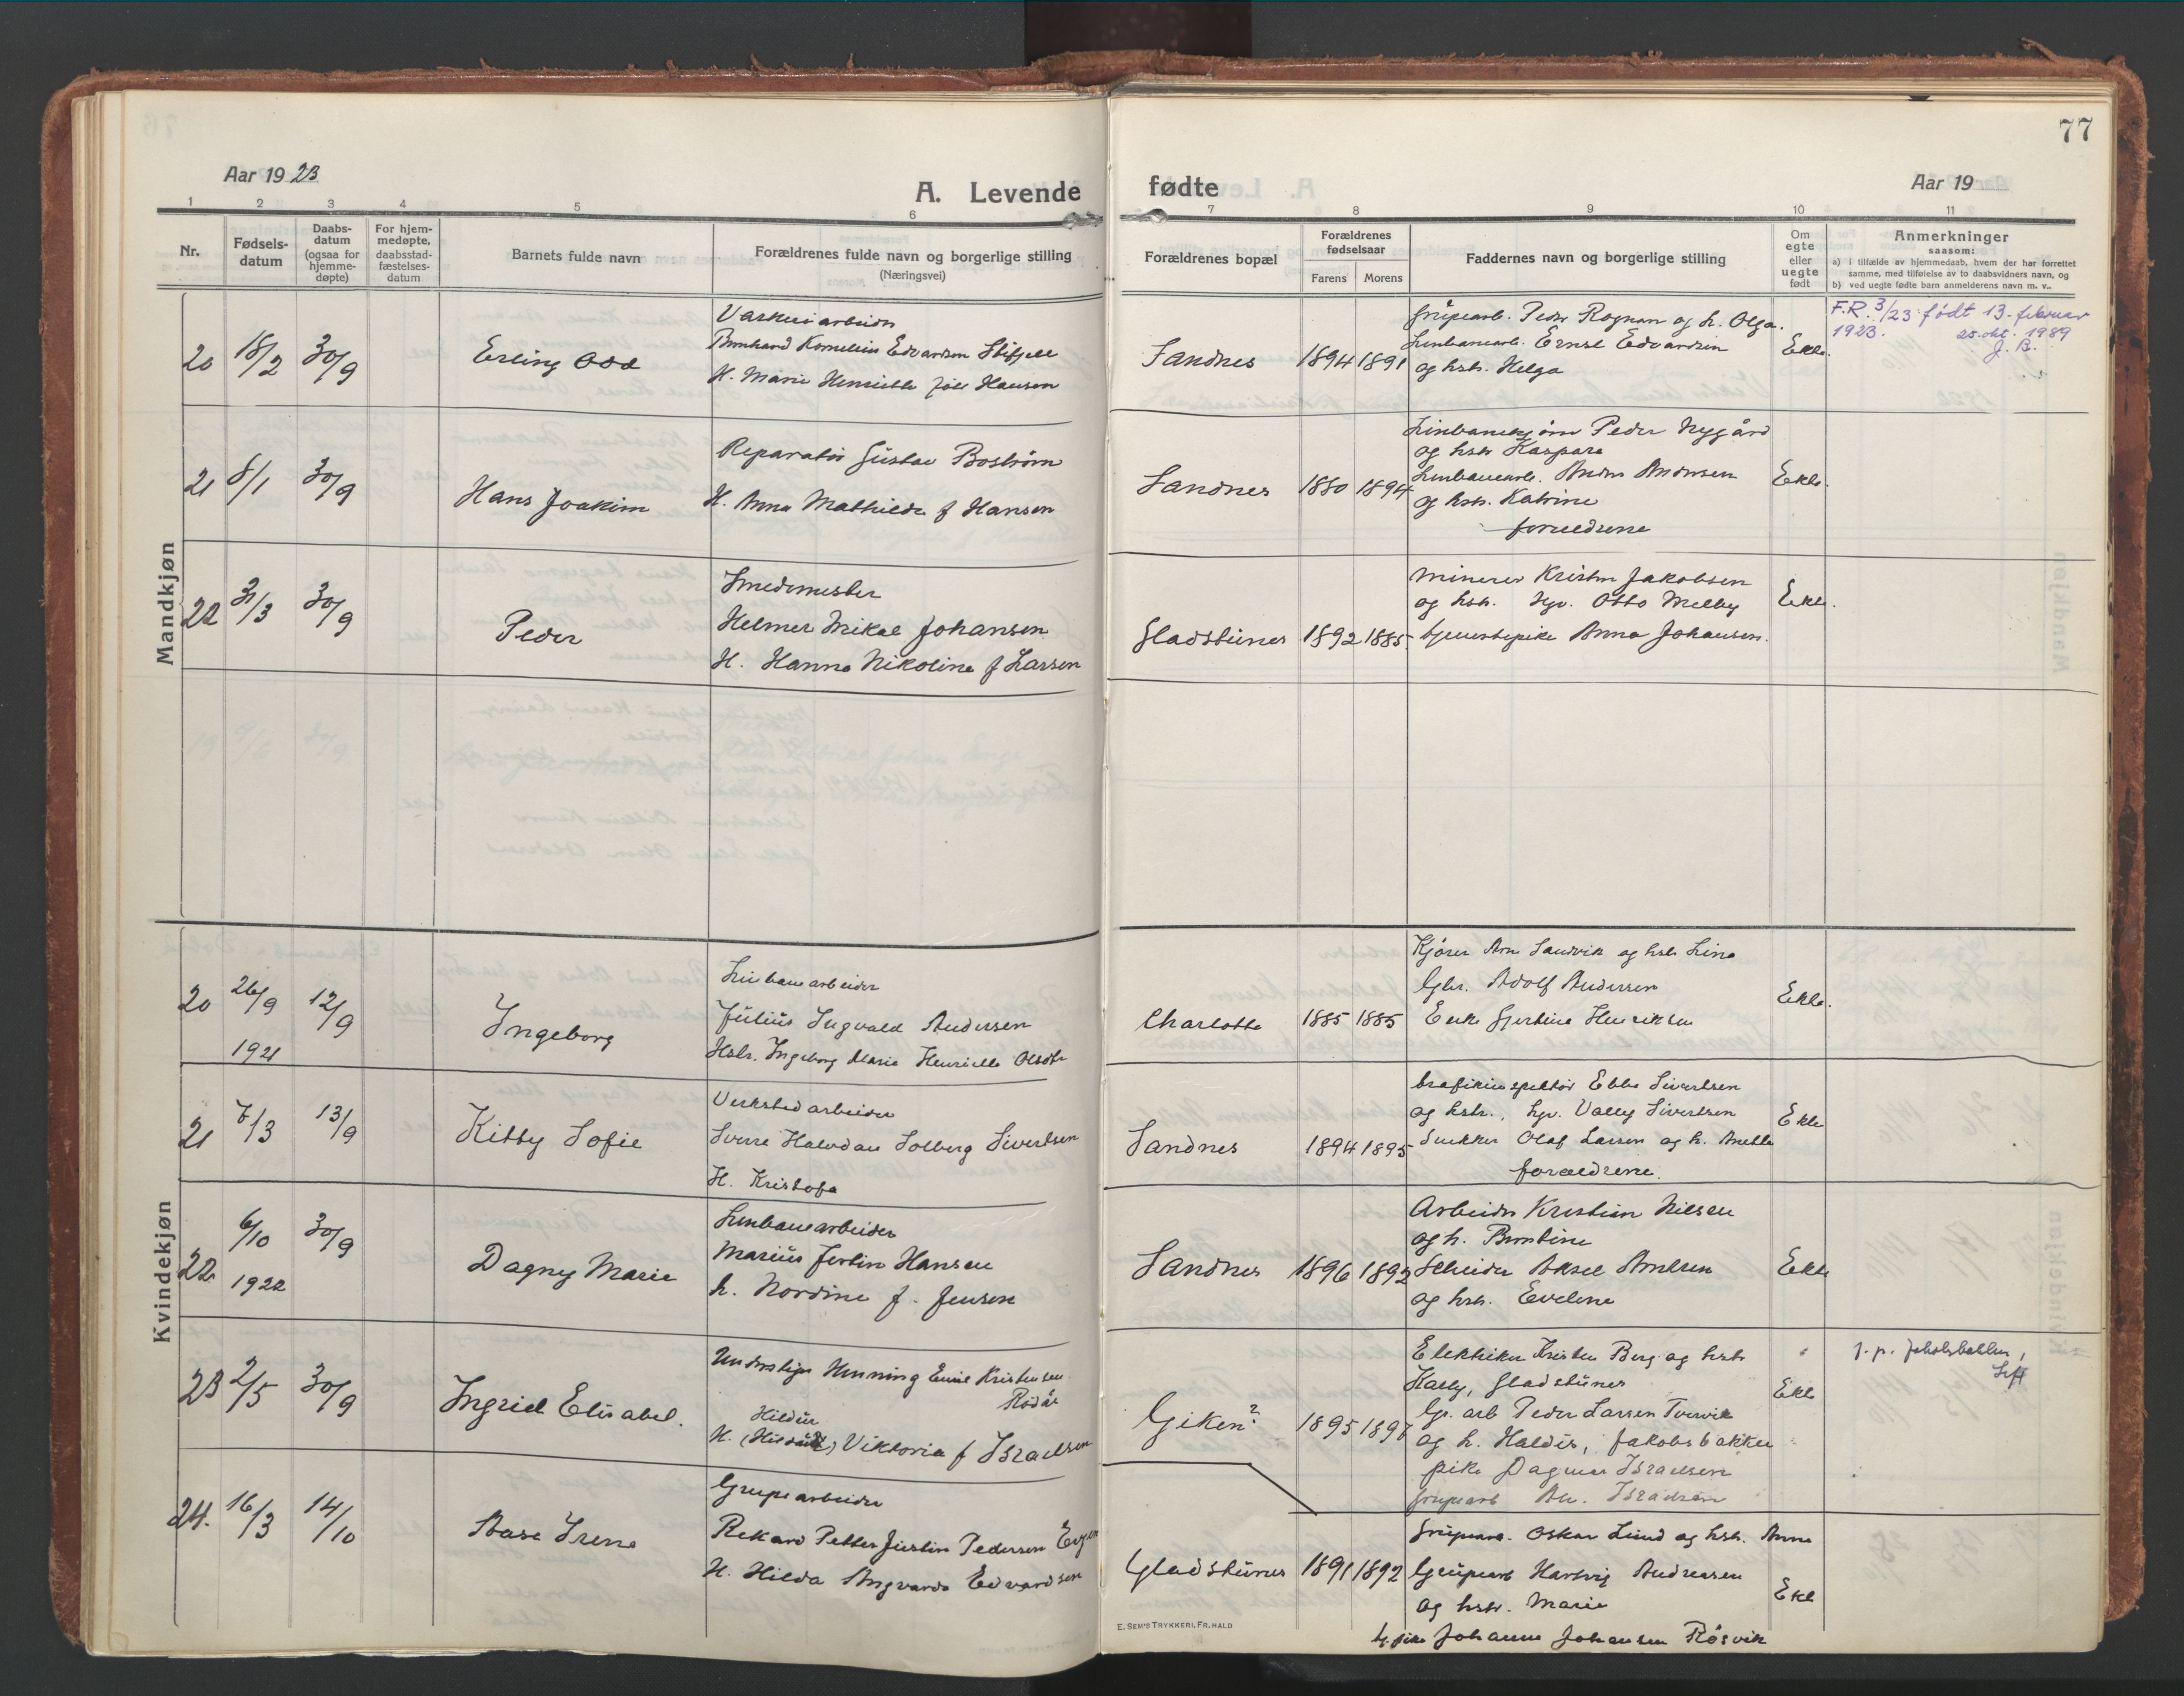 77
Aar 1923
A. Levende
fødte
Aar 19
1 2 3 4 5 6 7 8 9 10 11
Nr.
Fødsels-
datum
Daabs-
datum
(ogsaa for
hjemme-
døpte)
For hjem-
medøpte,
daabsstad-
fæstelses-
datum
Barnets fulde navn
Forældrenes fulde navn og borgerlige stilling
(Næringsvei)
Forældrenes bopæl
Forældrenes
fødselsaar
Farens Morens
Faddernes navn og borgerlige stilling
Om
egte
eller
uegte
født
Anmerkninger
saasom:
a) i tilfælde av hjemmedaab, hvem der har forrettet
samme, med tilføielse av to daabsvidners navn, og
b) ved uegte fødte barn anmelderens navn m. v..
Mandkjøn
20 18/2 30/9 Erling Odd
Bernhard Kornelius Edvardsen
H. Marie Henriette født Hansen
Sandnes 1894 1891
Grubearb. Peder Rognan og h. Olga.
Linbanearb. Ernst Edvardsen
og hstr. Helga
Ekte.
F.R. 3/23 født 13. februar
1923. 25. okt. 1989
J. B.
21 8/1 30/9 Hans Joakim
Reparatør Gustav Boström
H. Anna Mathilde f Hansen
Sandnes 1880 1894
Peder Nygård
og hstr Kaspara
Linbanearb. Anders Andersen
og hstr. Katrine
forældrene
Ekte.
22 31/3 30/9 Peder
Smedmester
Helmer Mikal Johansen
H. Hanna Nikoline f Larsen
Gladstunes 1892 1885
Minerer Kristen Jakobsen
og hstr. Otto Melby
tjenestepike Anna Johansen.
Ekte.
Kvindekjøn
20 26/9 1921 12/9 Ingeborg
Linbanearbeider
Julius Ingvald Andersen
Hstr. Ingeborg Marie Henriette Olsdtr
Charlotte 1885 1885
Kjører Arn Sandvik og hstr Lina
Gbr. Adolf Andersen
Enke Gjertine Henriksen
Ekte.
21 7/3 13/9 Kitty Sofie
Verkstedarbeider
Sverre Halvdan Solberg Sivertsen
H. Kristofa
Sandnes 1894 1895
trafikinspektør Ebbe Sivertsen
og hstr., Valley Sivertsen
Snekker Olaf Larsen og h. Anette
forældrene.
Ekte
22 6/10 1922 30/9 Dagny Marie
Linbanearbeider
Marius Jentin Hansen
h. Nordine f. Jensen
Sandnes 1896 1892
Arbeider Kristian Nilsen
og h. Berntine
Aksel Amtsen
og hstr. Eveline
Ekte
23 2/5 30/9 Ingrid Elisabet.
Understiger Henning Emil Kristensen
Rødår
Hildur
H. Viktoria f Israelsen
Giken? 1895 1896
Elektriker Kristen Berg og hstr
Karly, Gladstunes
Gr. arb Peder Larsen Tvervik
og h. Haldis, Jakobsbakken
pike Dagmar Israelsen
Grubearb Israelsen
Ekte
J. p. Jakobsbakken,
24. 16/3 14/10 Aase Irene
Grubearbeider
Rikard Petter Justin Pedersen
H. Hilda Angvarda Edvardsen
Gladstunes 1891 1892
Grubearb. Oskar Lund og hstr. Anna
Grubearb Hartvig Andreasen
og hstr. Marie
Johanne Johansen Røsvik
Ekte
E. SEM'S TRYKKERI, FR. HALD